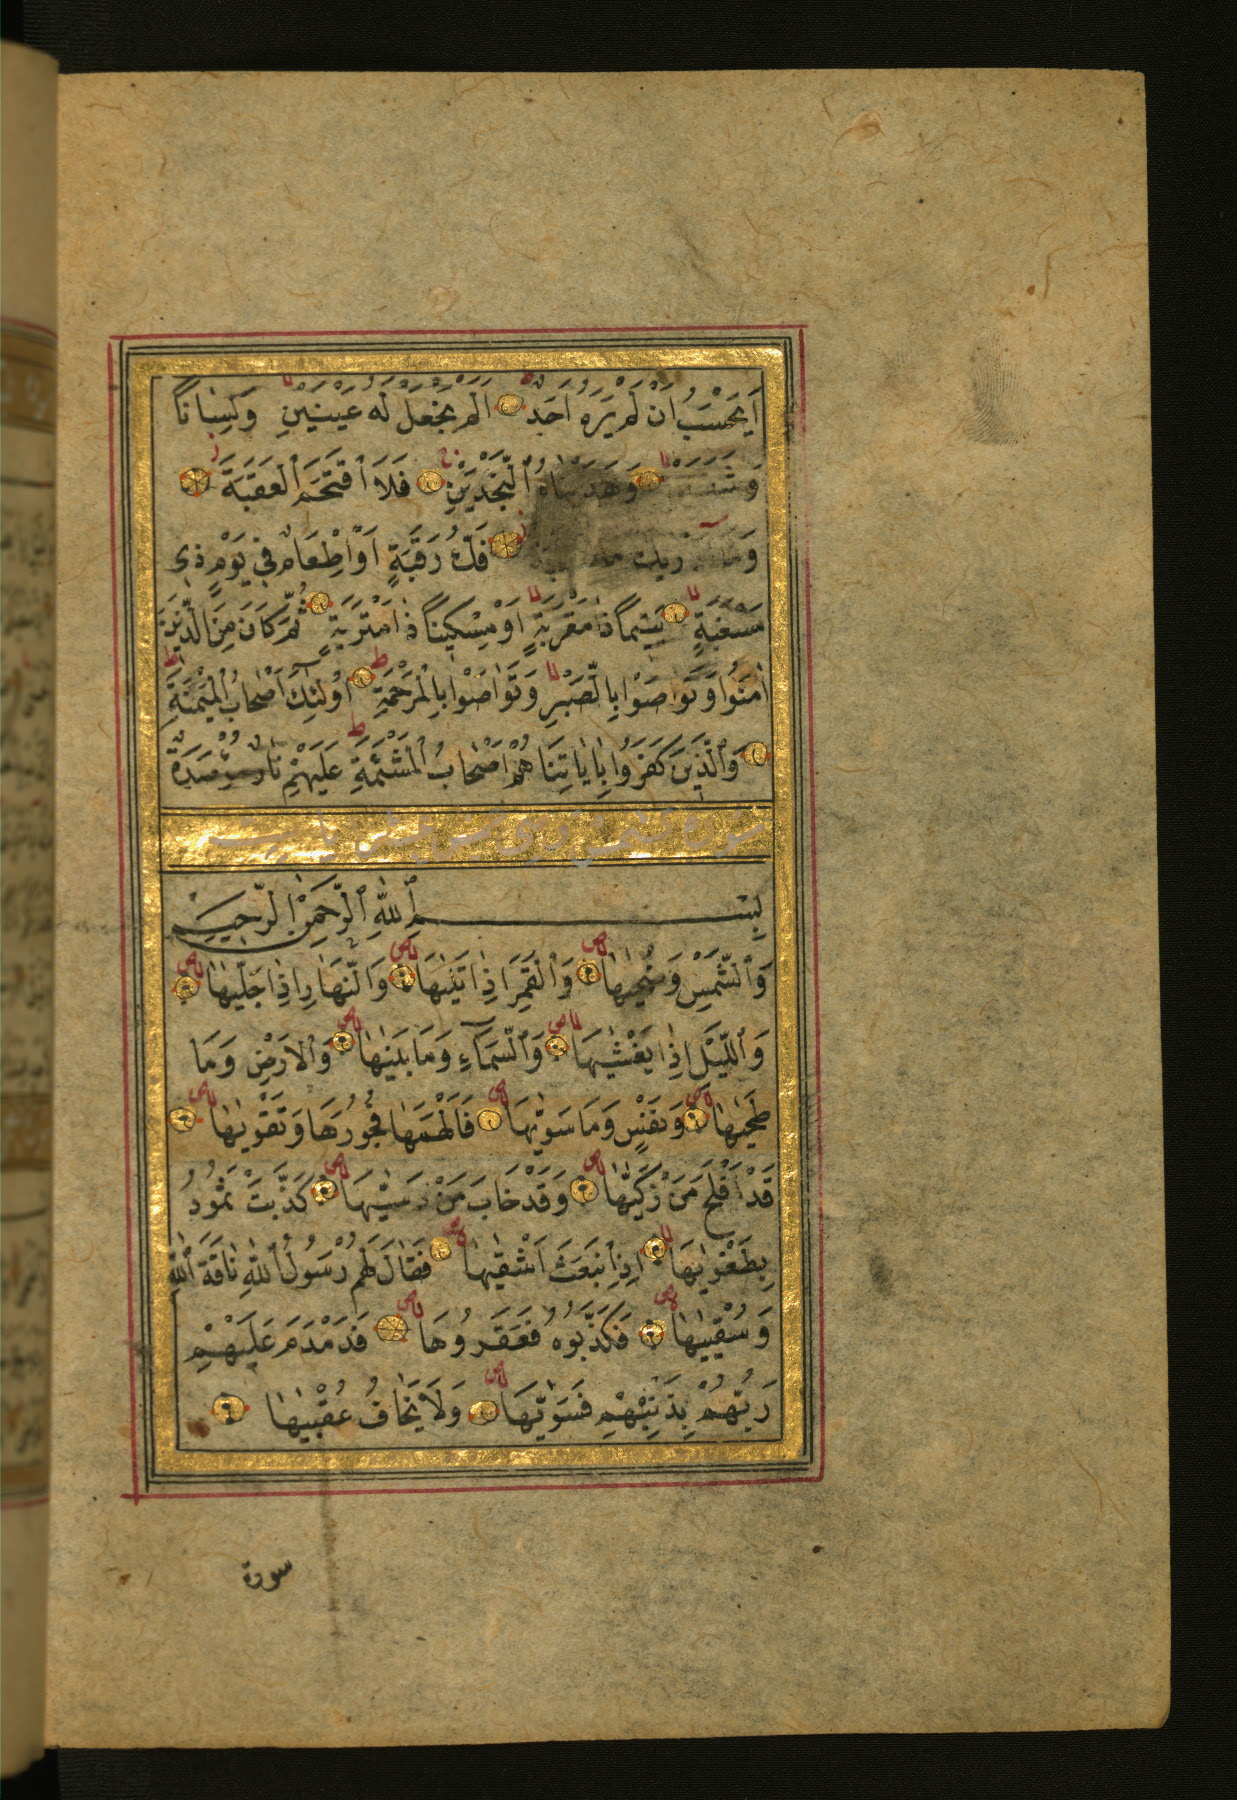 اَيَحْسَبُ اَنْ لَمْ يَرَهُ اَحَدٌ اَلَمْ نَجْعَلْ لَهُ عَيْنَيْنِ وَلِسَانًا
وَشَفَتَيْنِ وَهَدَيْنَاهُ ٱلنَّجْدَيْنِ فَلَا ٱقْتَحَمَ ٱلْعَقَبَةَ
وَمَا اَدْرٰيكَ مَا فَكُّ رَقَبَةٍ اَوْ اِطْعَامٌ فِي يَوْمٍ ذِي
مَسْغَبَةٍ يَتِيمًا ذَا مَقْرَبَةٍ اَوْ مِسْكِينًا ذَا مَتْرَبَةٍ ثُمَّ كَانَ مِنَ الَّذِينَ
اٰمَنُوا وَتَوَاصَوْا بِالصَّبْرِ وَتَوَاصَوْا بِالْمَرْحَمَةِ اُولٰئِكَ اَصْحَابُ الْمَيْمَنَةِ
وَٱلَّذِينَ كَفَرُوا بِاٰيَاتِنَا هُمْ اَصْحَابُ ٱلْمَشْئَمَةِ عَلَيْهِمْ نَارٌ مُؤْصَدَةٌ
سورة
بِسْمِ ٱللّٰهِ ٱلرَّحْمٰنِ ٱلرَّحِيمِ
وَٱلشَّمْسِ وَضُحٰيهَا وَٱلْقَمَرِ اِذَا تَلٰيهَا وَالنَّهَارِ اِذَا جَلّٰيهَا
وَٱللَّيْلِ اِذَا يَغْشٰيهَا وَٱلسَّمَاءِ وَمَا بَنٰيهَا وَٱلْاَرْضِ وَمَا
طَحٰيهَا وَنَفْسٍ وَمَا سَوّٰيهَا فَاَلْهَمَهَا فُجُورَهَا وَتَقْوٰيهَا
قَدْ اَفْلَحَ مَنْ زَكّٰيهَا وَقَدْ خَابَ مَنْ دَسّٰيهَا كَذَّبَتْ ثَمُودُ
بِطَغْوٰيهَا اِذِ ٱنْبَعَثَ اَشْقٰيهَا فَقَالَ لَهُمْ رَسُولُ ٱللّٰهِ نَاقَةَ ٱللّٰهِ
وَسُقْيٰيهَا فَكَذَّبُوهُ فَعَقَرُوهَا فَدَمْدَمَ عَلَيْهِمْ
رَبُّهُمْ بِذَنْبِهِمْ فَسَوّٰيهَا وَلَا يَخَافُ عُقْبٰيهَا
سورة